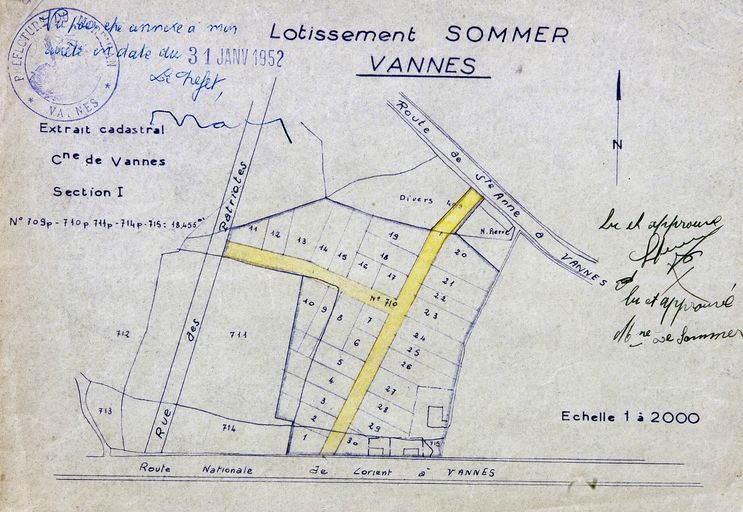 Vu pour être annexé à mon
arrêté en date du 31 JANV 1952
Le Préfet,
PREFECTURE DU MORBIHAN
* VANNES *
Lotissement SOMMER
VANNES
Extrait cadastral
Cne de Vannes
Section I
N° 709p - 710p 711p - 714p - 715 = 18,455 m²
N
Route de Ste Anne à VANNES
Rue des Patriotes
Divers
N. Pierre
11 12 13 14 15 16 17 18 19
20
21
22
23
24
25
26
27
28
29
30
N° 710
10 9 8 7
6
5
4
3
2
1
711
712
713
714
715
Lu et approuvé
Lu et approuvé
Mme De Sommer
Echelle 1 à 2000
Route Nationale de Lorient à VANNES